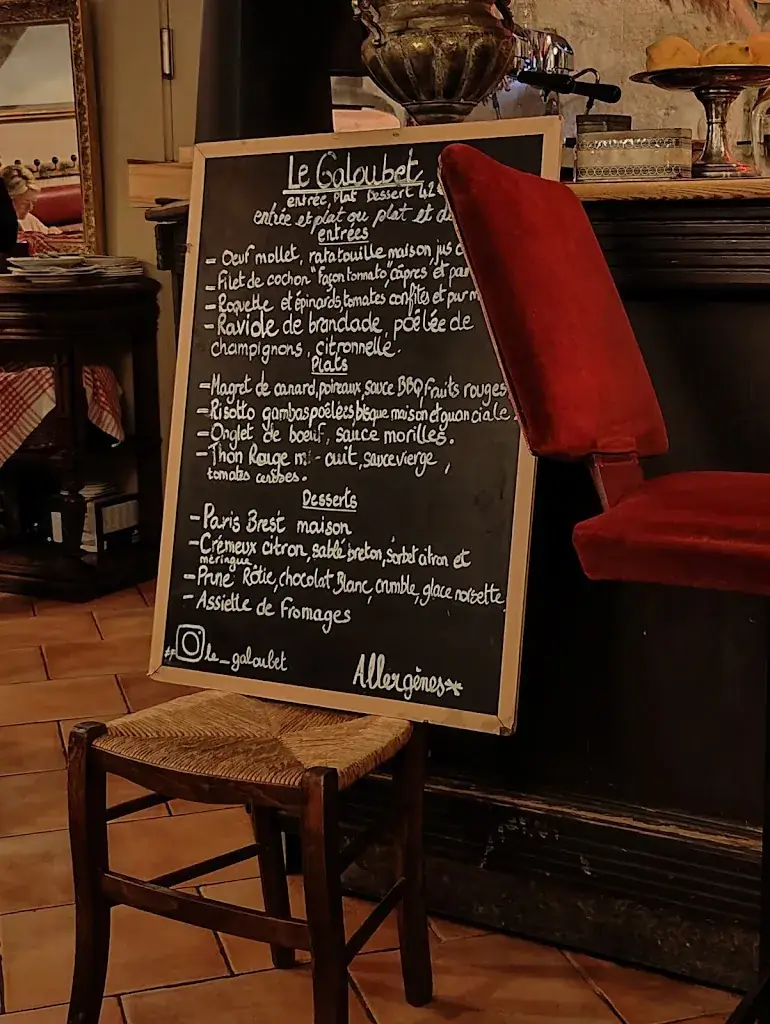 Le Galoubet
entrée, Plat Dessert 42
entrée et plat ou plat et
entrées
- Oeuf mollet, ratatouille maison, jus
- Filet de cochon "façon tonnato", câpres et
- Roquette et épinards, tomates confites et
- Raviole de brandade, poêlée de
champignons, citronnelle.
Plats
- Magret de canard, poireaux, sauce BBQ, fruits rouges
- Risotto gambas poêlées, bisque maison et guanciale.
- Onglet de boeuf, sauce morilles.
- Thon Rouge mi-cuit, sauce vierge,
tomates cerises.
Desserts
- Paris Brest maison
- Crémeux citron, sablé breton, sorbet citron et
meringue
- Prune Rôtie, chocolat Blanc, crumble, glace noisette
- Assiette de Fromages
le_galoubet
Allergènes*